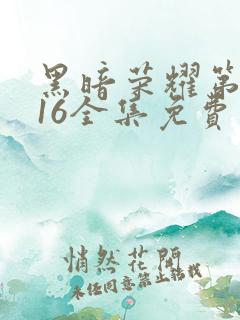 黑暗荣耀第
16全集免费
悄然花開
未经同意禁止转载